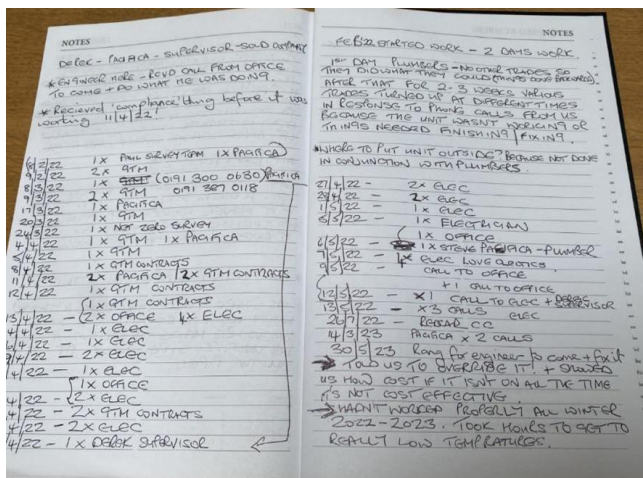 NOTES
DEREK - PACIFICA - SUPERVISOR - SOLD COMPANY
* ENGINEER HERE - RCVD CALL FROM OFFICE
TO COME + DO WHAT HE WAS DOING.
* Recieved 'compliance' thing before it was
working 11/4/22!
8/2/22 1 x PAUL SURVEY TEAM 1 x PACIFICA
9/2/22 2 x GTM
8/3/22 1 x (0191 300 0630) PACIFICA
9/3/22 2 x GTM 0191 387 0118
17/3/22 1 x PACIFICA
20/3/22 1 x GTM
24/3/22 1 x NOT ZERO SURVEY
4/4/22 1 x GTM 1 x PACIFICA
5/4/22 1 x GTM
8/4/22 1 x GTM CONTRACTS
11/4/22 2 x PACIFICA / 2 x GTM CONTRACTS
12/4/22 1 x GTM CONTRACTS
1 x GTM CONTRACTS
13/4/22 - 2 x OFFICE 4 x ELEC
4/4/22 - 1 x ELEC
6/4/22 - 1 x ELEC
9/4/22 - 2 x ELEC
4/22 - 1 x ELEC
1 x OFFICE
4/22 - 2 x ELEC
4/22 - 2 x GTM CONTRACTS
4/22 - 2 x ELEC
4/22 - 1 x DEREK SUPERVISOR
NOTES
FEB '22 STARTED WORK - 2 DAYS WORK.
1ST DAY PLUMBERS - NO OTHER TRADES SO
THEY DID WHAT THEY COULD
AFTER THAT FOR 2-3 WEEKS VARIOUS
TRADES TURNED UP AT DIFFERENT TIMES
IN RESPONSE TO PHONE CALLS FROM US
BECAUSE THE UNIT WASNT WORKING OR
THINGS NEEDED FINISHING / FIXING.
* WHERE TO PUT UNIT OUTSIDE? BECAUSE NOT DONE
IN CONJUNCTION WITH PLUMBERS.
27/4/22 - 2 x ELEC
28/4/22 - 2 x ELEC
1/5/22 - 1 x ELEC
5/5/22 - 1 x ELECTRICIAN
1 x OFFICE
6/5/22 - 1 x STEVE PACIFICA - PLUMBER
9/5/22 - 1x ELEC LOVE
9/5/22 - CALL TO OFFICE
+ 1 CALL TO OFFICE
12/5/22 - x1 CALL TO ELEC + DEREK SUPERVISOR
13/5/22 - x3 CALLS ELEC
26/7/22 - CC
14/3/23 PACIFICA x 2 CALLS
30/5/23 Rang for engineer to come + fix it
→ TOLD US TO OVERRIDE IT! + SHOWED
US HOW COST IF IT ISNT ON ALL THE TIME
ITS NOT COST EFFECTIVE.
→ HADNT WORKED PROPERLY ALL WINTER
2022-2023. TOOK HOURS TO GET TO
REALLY LOW TEMPRATURES.